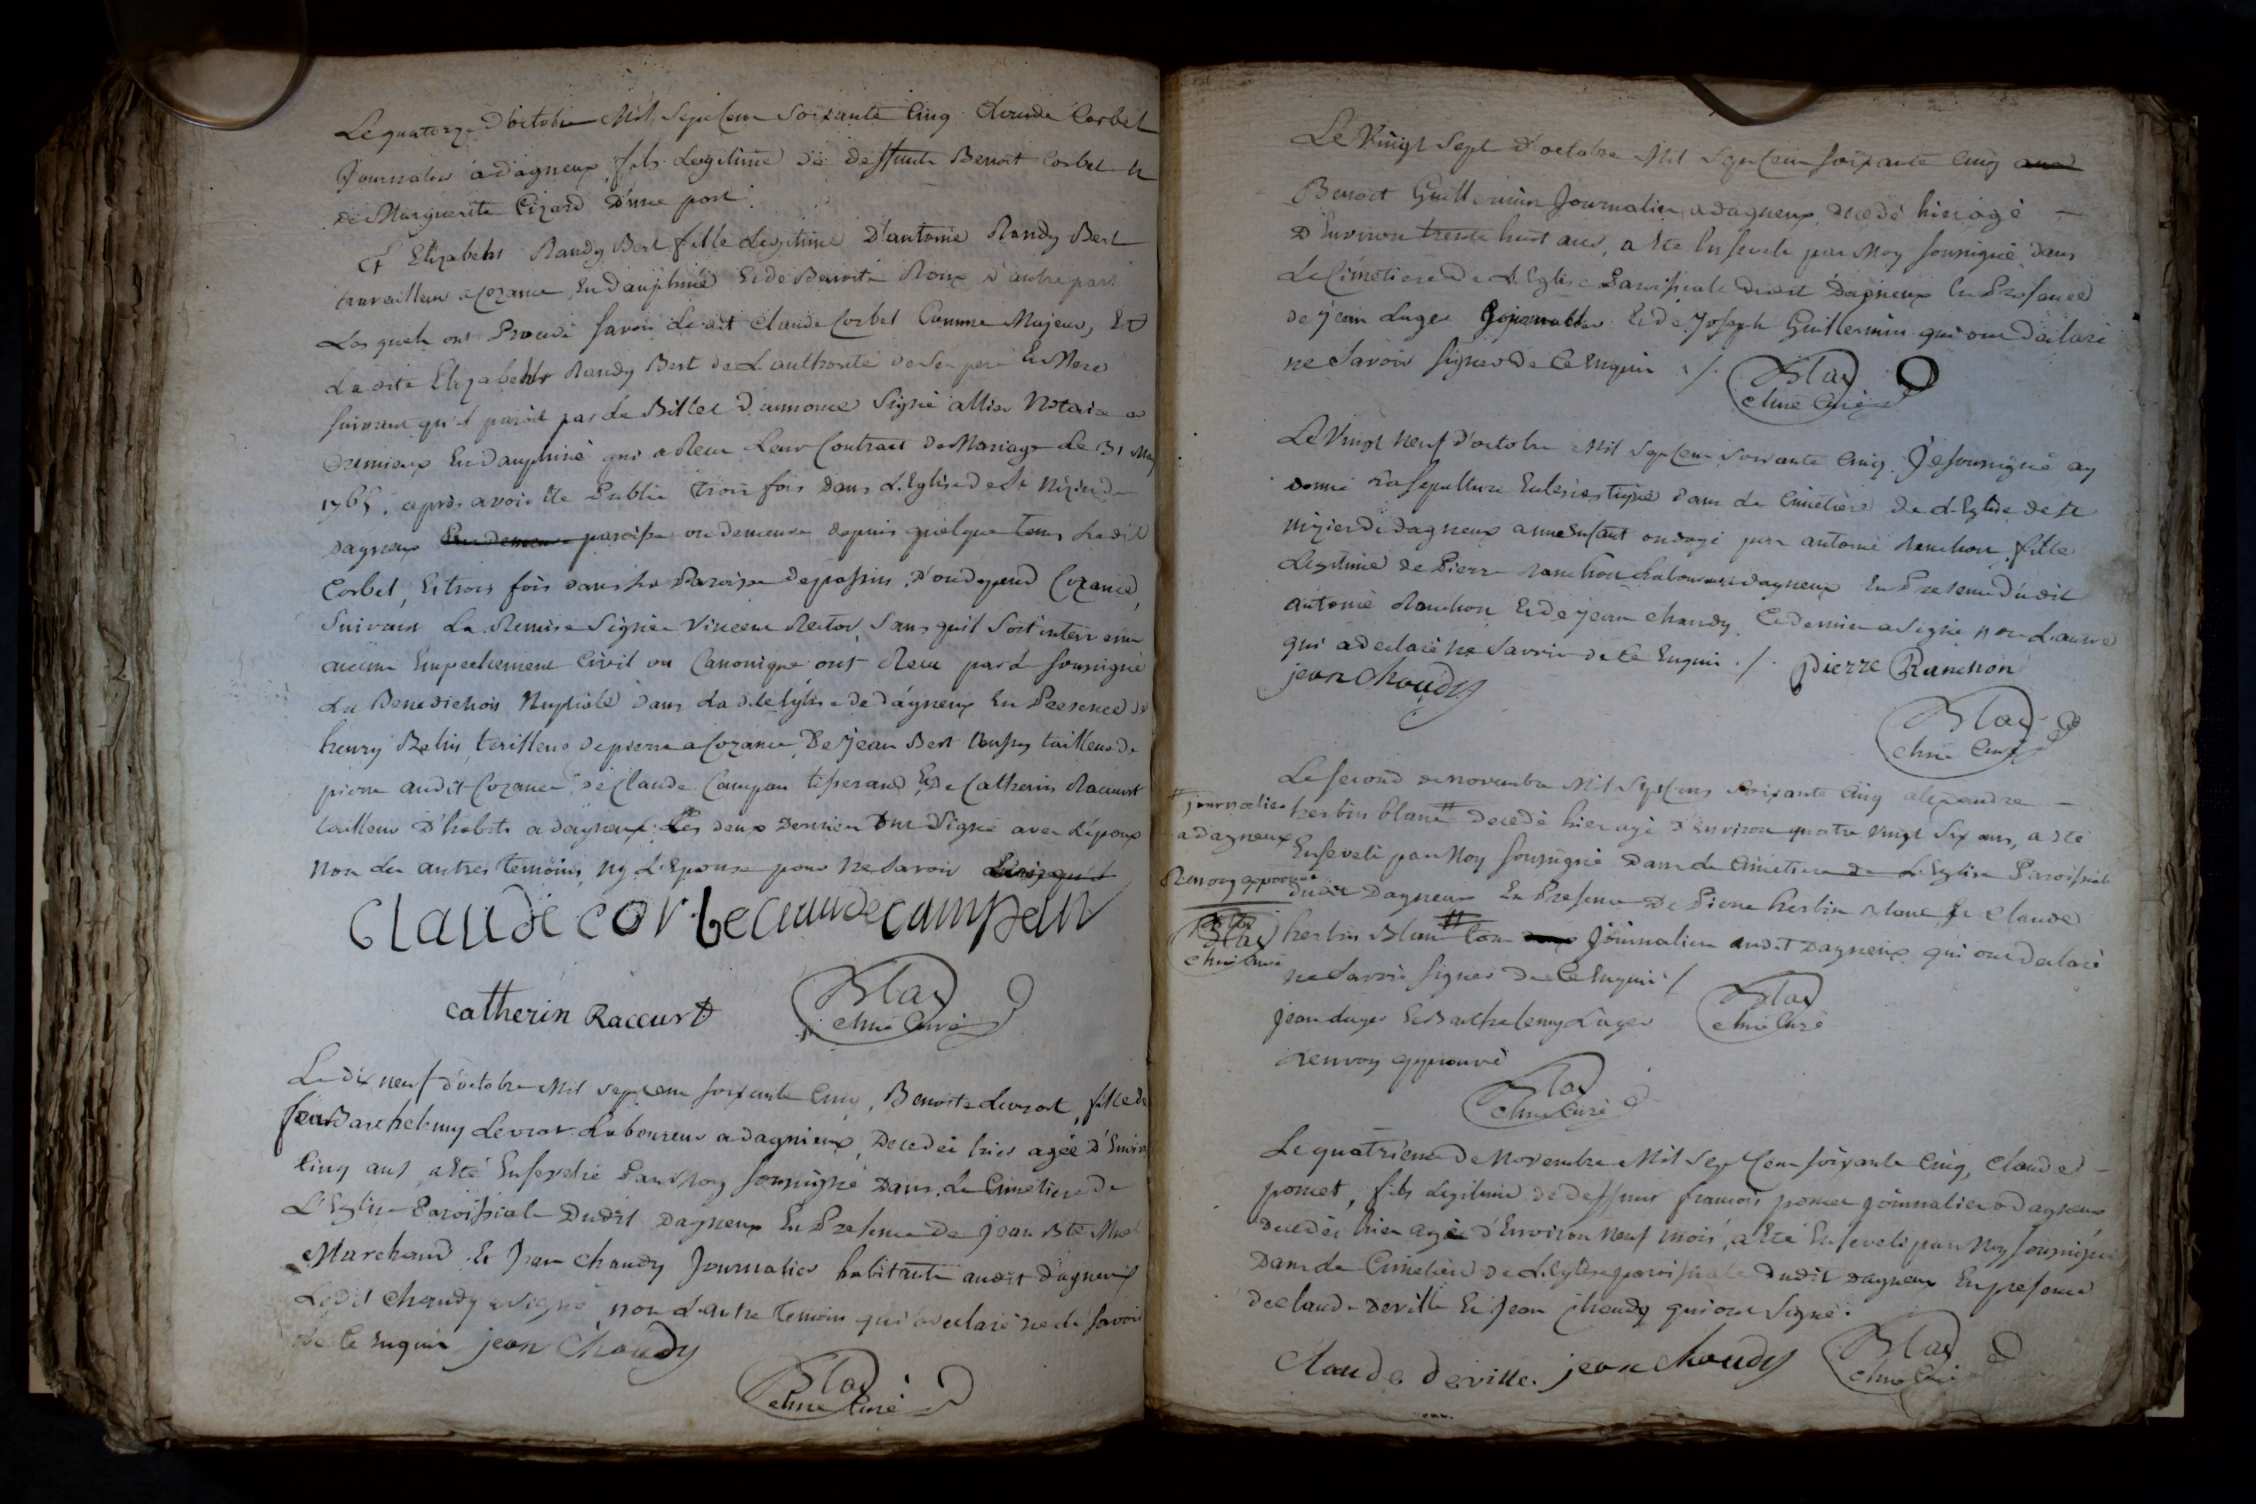 Le quatorze D'octobre Mil Sept Cent Soixante Cinq Claude Corbet
Journalier a dagneux, fils Legitime de deffunt Benoit Corbet et
de Marguerite Cizard D'une part
Et Elizabeth Randy Bert fille Legitime D'antoine Randy Bert
travailleur a Cozance En dauphiné Et de Benoite Roux d'autre part
Lesquels ont Procedé Savoir Ledit Claude Corbet Comme Majeur, Et
La dite Elizabeth Randy Bert de L'authorité de Ses pere Et Mere
suivant qu'il paroit par le Billet d'annonce Signé allier Notaire a
Cremieux En dauphiné qui a Receu Leur Contract de Mariage Le 31 May
1765. après avoir été Publié trois fois Dans L'Eglise de St Nizier de
Dagneux paroisse ou demeure depuis quelque tems Ledit
Corbet, Et trois fois dans La Paroisse de passin, d'ou depend Cozance,
Suivant La Remise Signée Vincent Rector, Sans quil Soit intervenu
aucun Empechement Civil ou Canonique ont Receu par Le Soussigné
La Benediction Nuptiale dans Ladite Eglise de dagneux En Presence de
henry Belin tailleur de pierre a Cozance, De Jean Bert tailleur de
pierre audit Cozance de Claude Campan tisserand Et De Catherin Raccurt
tailleur D'habits a dagneux. Les deux Derniers Ont Signé avec L'époux
Non Les autres temoins, ny L'Epouse pour Ne Savoir
Claude Corbe Claude Campan
Catherin Raccurt
Blay
Curé
Le dix neuf d'octobre Mil Sept Cent soixante Cinq, Benoite Levrat, fille de
feu Barthelemy Levrat Laboureur a dagnieux, Decedée hier agée d'Environ
Cinq ans, a Eté Ensevelie Par Moy soussigné Dans Le Cimetiere de
L'Eglise Paroissiale Dudit Dagneux En Presence De Jean Bte
Marchand Et Jean Chaudy Journalier habitants audit dagneux
Ledit Chaudy a Signé non L'autre temoin qui a declaré ne Le Savoir
de Ce Enquis jean Chaudy
Blay
Curé
Le Vingt Sept d'octobre Mil Sept Cent Soixante Cinq
Benoit Guillermin Journalier a dagneux decedé hier agé
D'Environ trente huit ans, a Eté Enseveli par Moy soussigné dans
Le Cimetiere de L'Eglise Paroissiale dudit Dagneux En Presence
de Jean Luger Journalier Et de Joseph Guillermin qui ont declaré
ne Savoir Signer De Ce Enquis ./.
Blay
Curé
Le Vingt Neuf d'octobre Mil Sept Cent Soixante Cinq. Je soussigné ay
donné La Sepulture Eclesiastique dans Le Cimetiere de L'Eglise de St
nizier de Dagneux a une Enfant ondoyé par antoine Ranchon, fille
Legitime de Pierre Ranchon Laboureur a dagneux En Presence dudit
antoine Ranchon Et de Jean Chaudy. Ce dernier a Signé non L'autre
qui a declaré ne Savoir de Ce Enquis ./. pierre Ranchon
jean Chaudy
Blay
Curé
Le second de novembre Mil Sept Cens Soixante Cinq alexandre
# journalier
a dagneux
Renvoy approuvé
Blay
Curé
herbin blanc # decedé hier agé d'Environ quatre vingt Six ans, a Eté
Enseveli par Moy soussigné Dans Le Cimetiere de L'Eglise Paroissiale
dudit Dagneux En Presence De Pierre herbin blanc Et Claude
herbin Blanc # Journalier audit Dagneux qui ont declaré
ne Savoir Signer de Ce Enquis /
Jean Luger Et Barthelemy Luger
Blay
Curé
Renvoy approuvé
Blay
Curé
Le quatrieme De Novembre Mil Sept Cent soixante Cinq, Claude
pomet, fils Legitime de deffunt francois pomet journalier a Dagneux
decedé hier agé d'Environ neuf mois, a Eté Enseveli par Moy soussigné
Dans Le Cimetiere de L'Eglise paroissiale dudit Dagneux En presence
de Claude Deville Et Jean Chaudy qui ont Signé.
Claude deville. jean Chaudy
Blay
Curé